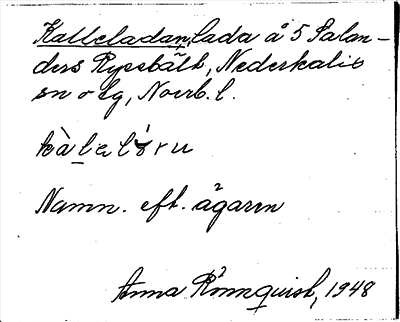 Kalleladan, lada å 5 Palan-
ders Ryssbält, Nederkalix
sn o lg, Norrb. l.
Namn. eft. ägaren
Anna Rönnquist, 1948